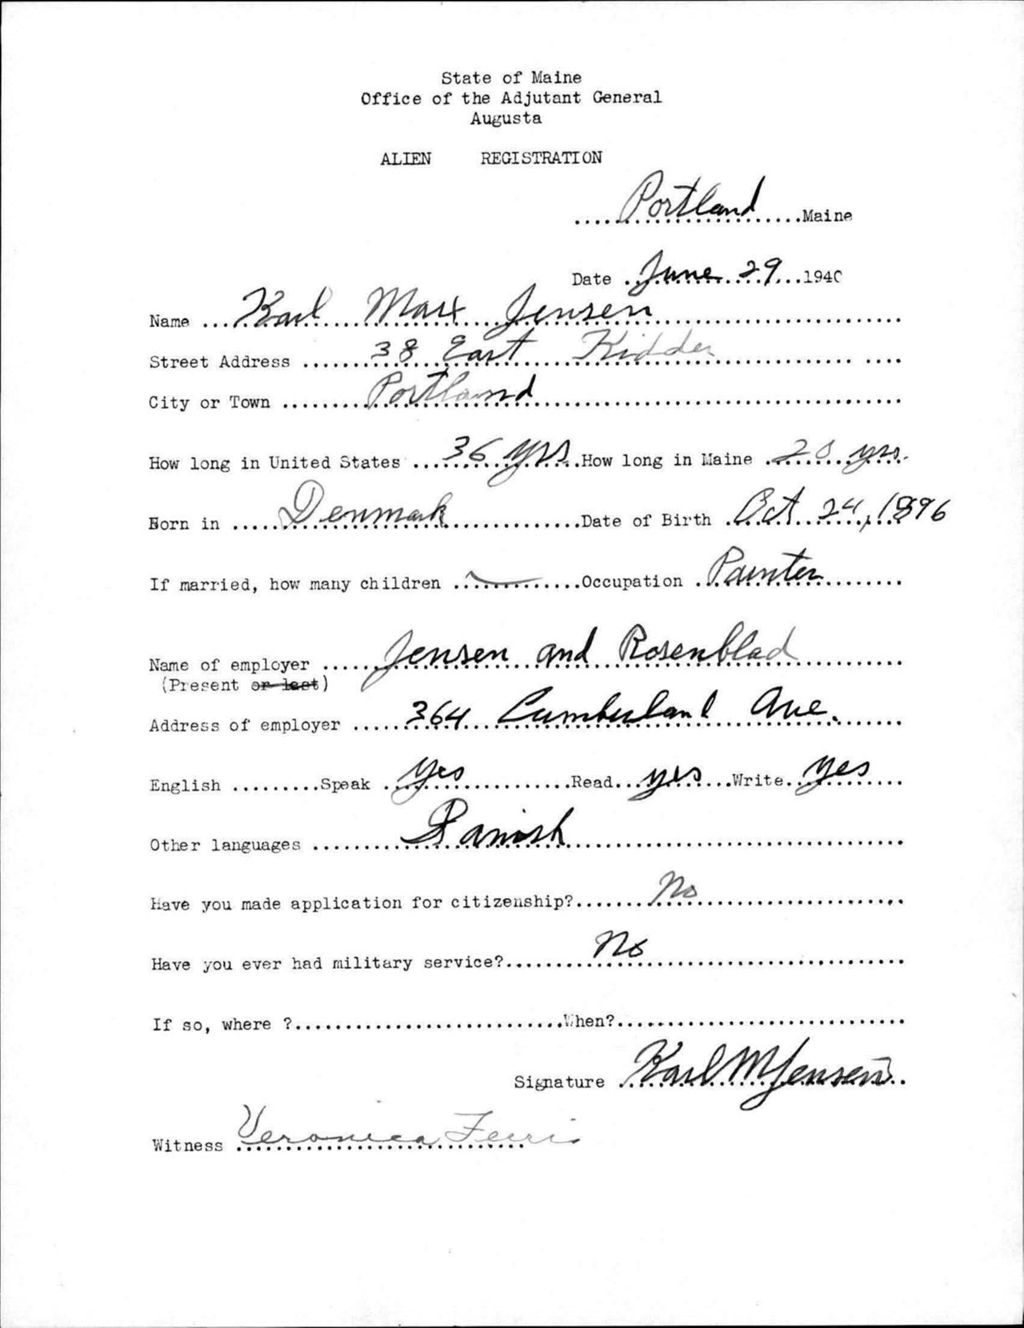 State of Maine
Office of the Adjutant General
Augusta
ALIEN REGISTRATION
Portland Maine
Date June 29 1940
Name Karl Marx Jensen
Street Address 38 East Kidder
City or Town Portland
How long in United States 36 yrs How long in Maine yrs.
Born in Denmark Date of Birth Oct 24, 1896
If married, how many children Occupation Painter
Name of employer Jensen and Rosenblad
(Present or last)
Address of employer 364 Cumberland Ave.
English Speak Yes Read yes Write yes
Other languages Danish
Have you made application for citizenship? No
Have you ever had military service? No
If so, where ? When?
Signature Karl M Jensen
Witness Veronica Ferris